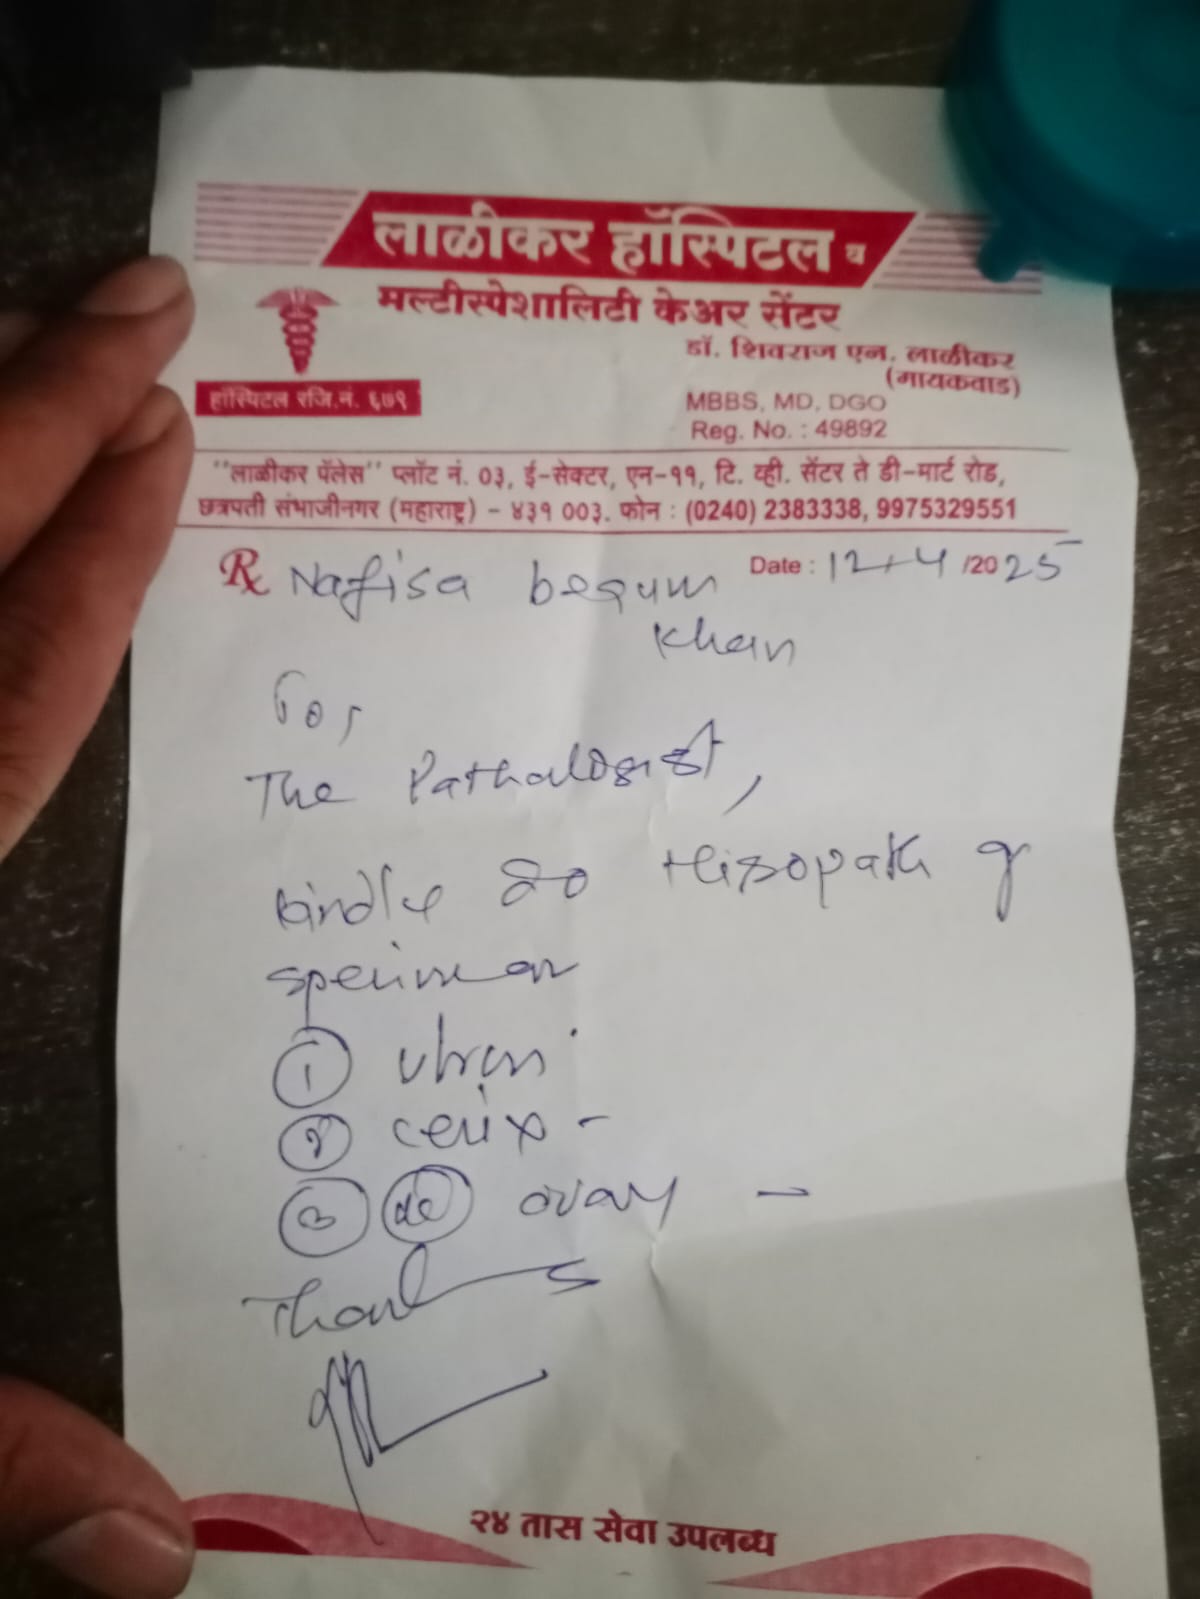 लाळीकर हॉस्पिटल व
मल्टीस्पेशालिटी केअर सेंटर
डॉ. शिवराज एन. लाळीकर
(गायकवाड)
हॉस्पिटल रजि.नं. ६७९
MBBS, MD, DGO
Reg. No. : 49892
"लाळीकर पॅलेस" प्लॉट नं. ०३, ई-सेक्टर, एन-११, टि. व्ही. सेंटर ते डी-मार्ट रोड,
छत्रपती संभाजीनगर (महाराष्ट्र) - ४३१ 003. फोन : (0240) 2383338, 9975329551
Rx Nafisa begum Date : 12/4/2025
Khan
To,
The Pathalogist,
kindly do Hisopath of
specimen
①
② cervix -
③ ovary -
Thanks
२४ तास सेवा उपलब्ध